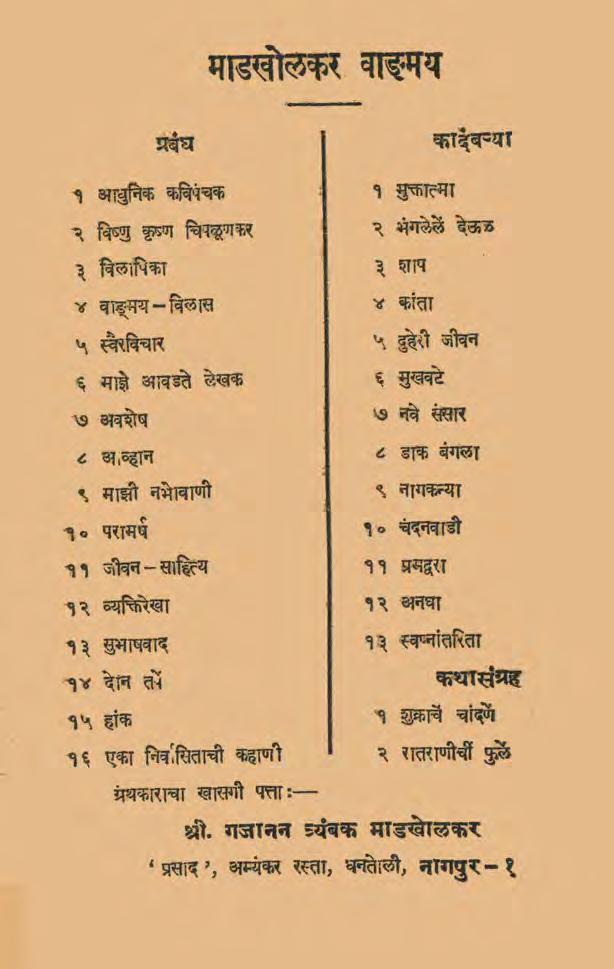 माडखोलकर वाङ्मय
प्रबंध
१ आधुनिक कविपंचक
२ विष्णु कृष्ण चिपळूणकर
३ विलापिका
४ वाङ्मय – विलास
५ स्वैरविचार
६ माझे आवडते लेखक
७ अवशेष
८ आव्हान
९ माझी नभोवाणी
१० परामर्ष
११ जीवन – साहित्य
१२ व्यक्तिरेखा
१३ सुभाषवाद
१४ दोन तपें
१५ हांक
१६ एका निर्वासिताची कहाणी
कादंबऱ्या
१ मुक्तात्मा
२ भंगलेलें देऊळ
३ शाप
४ कांता
५ दुहेरी जीवन
६ मुखवटे
७ नवे संसार
८ डाक बंगला
९ नागकन्या
१० चंदनवाडी
११ प्रमद्वरा
१२ अनघा
१३ स्वप्नांतरिता
कथासंग्रह
१ शुक्राचें चांदणें
२ रातराणीचीं फुलें
ग्रंथकाराचा खासगी पत्ता :—
श्री. गजानन त्र्यंबक माडखोलकर
‘ प्रसाद ’, अभ्यंकर रस्ता, धनतोली, नागपुर – १